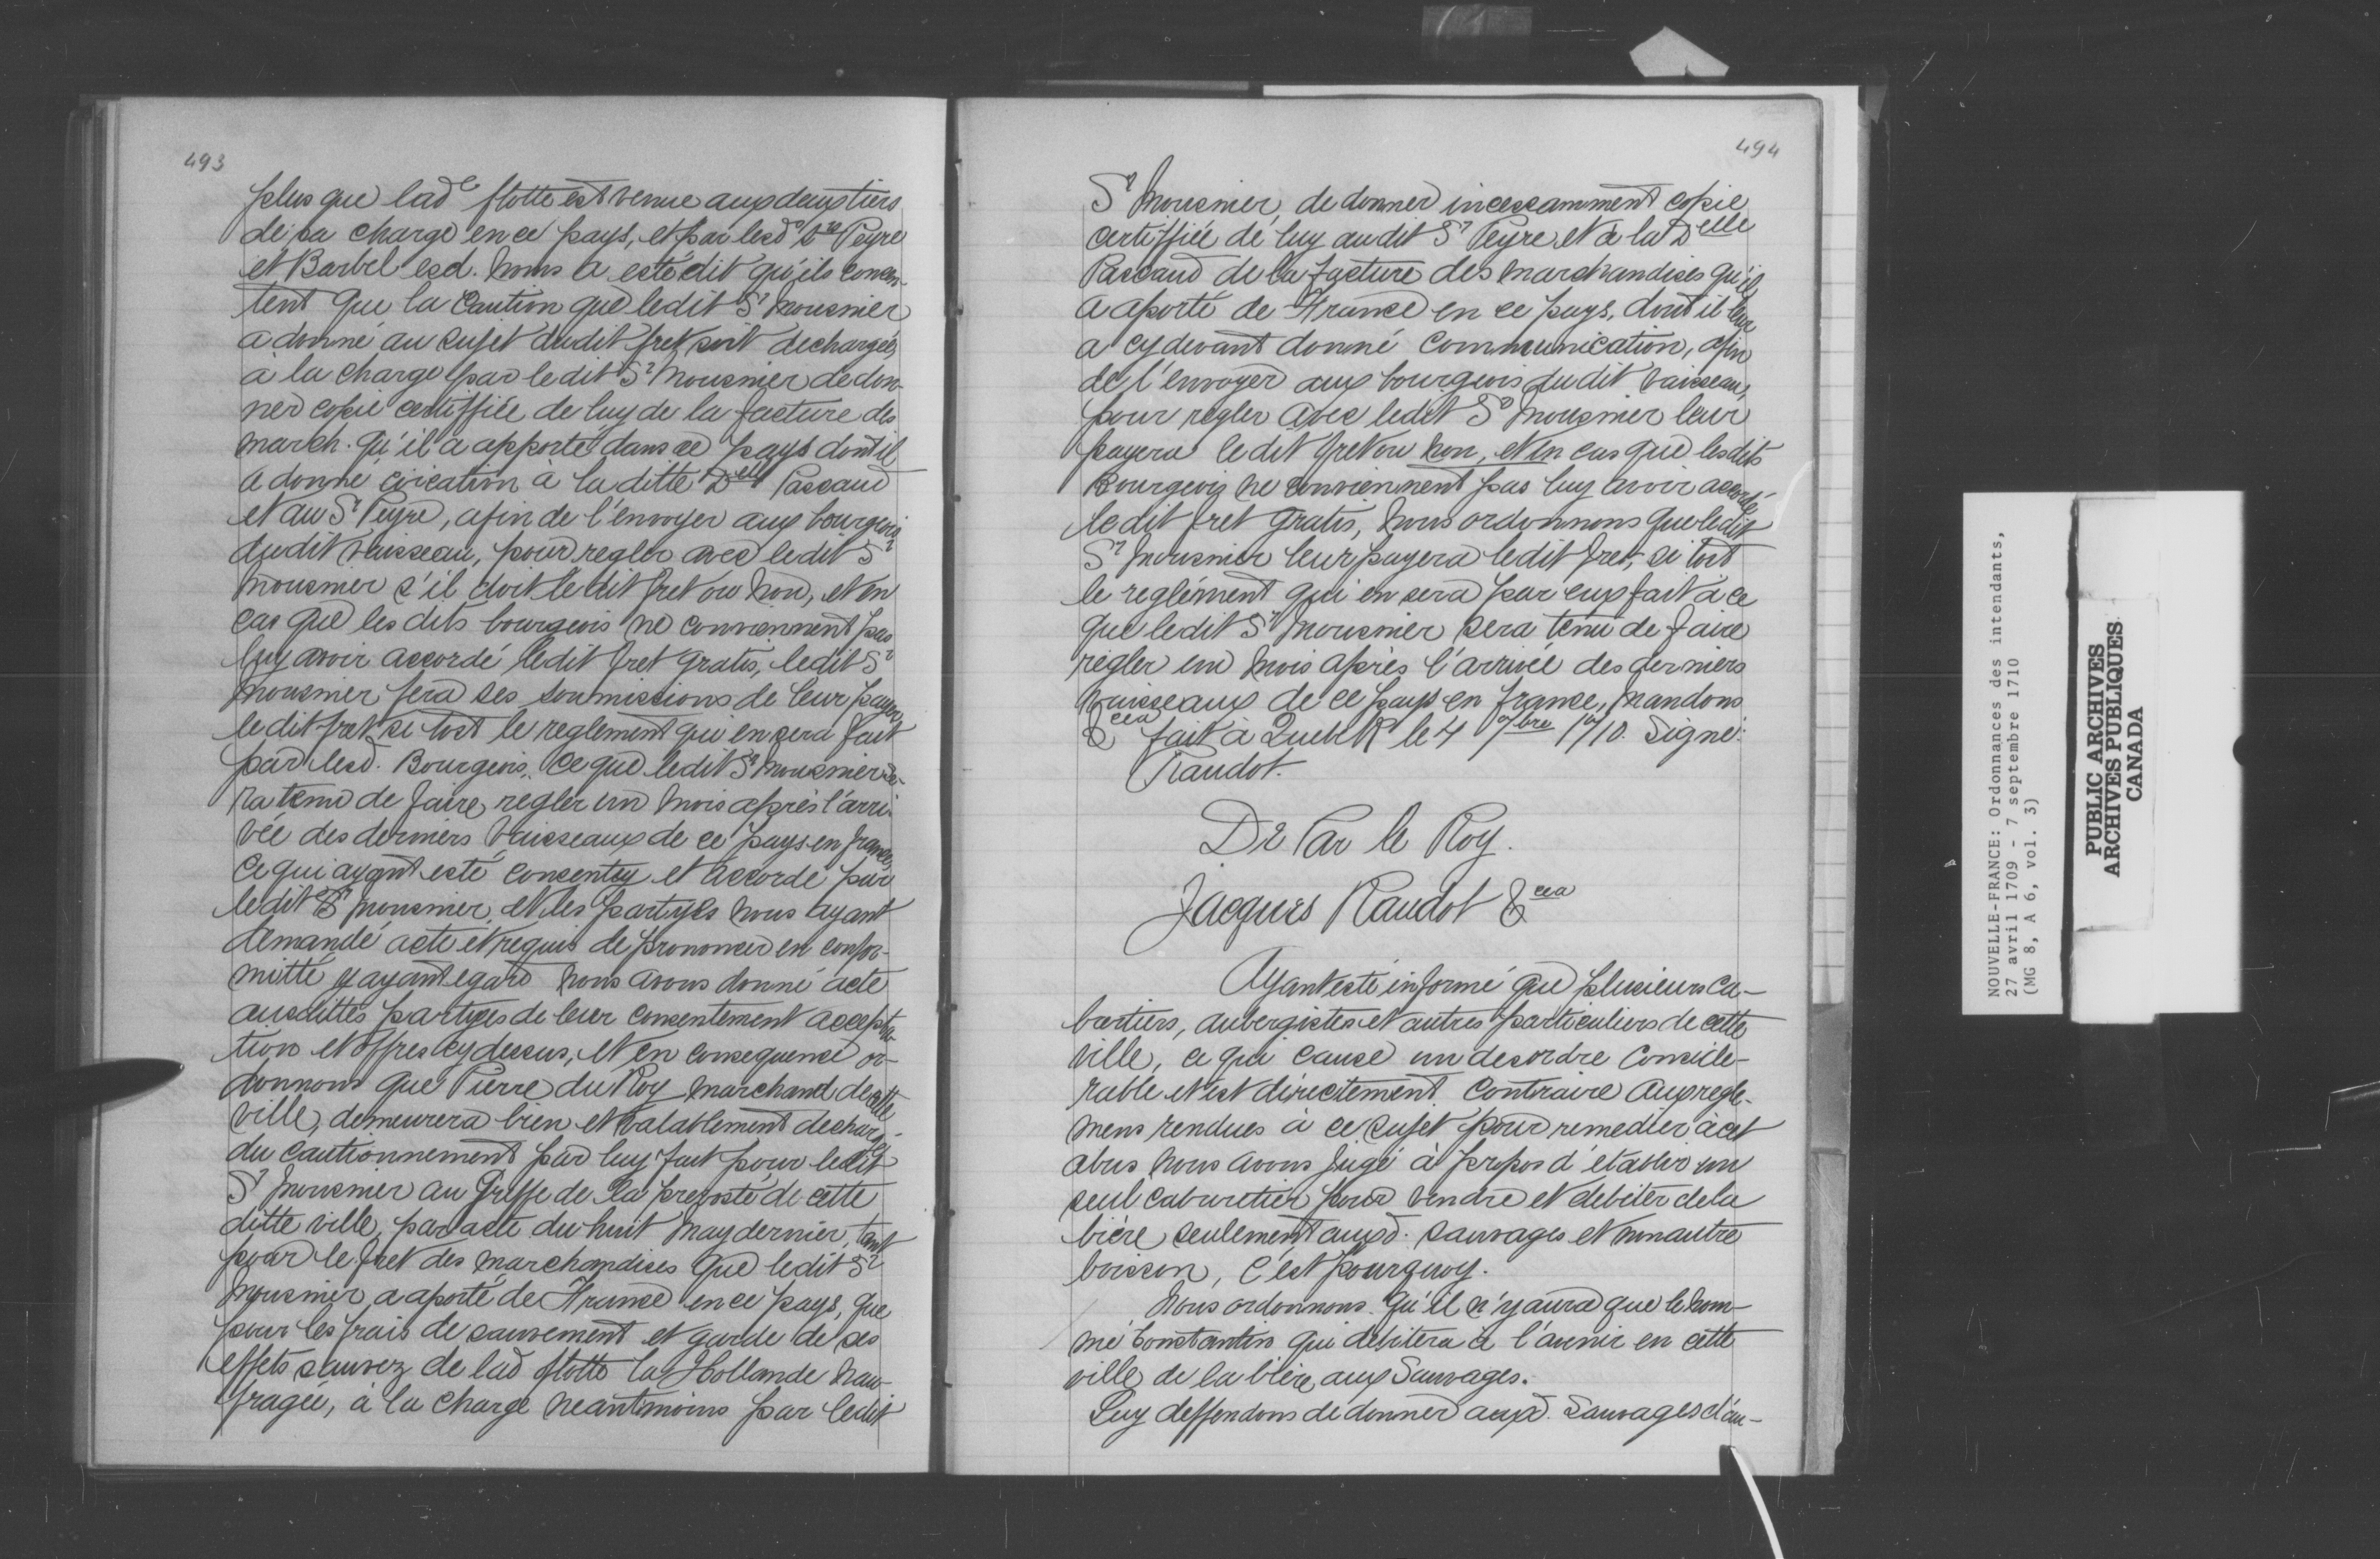 493
plus que lad.e flotte est venue aux deux tiers
de sa charge en ce pays, et par lesd. Srs Peyre
et Barbel esd. noms a esté dit qu'ils consen-
tent que la Caution que ledit Sr Mousnier
a donné au sujet dudit fret soit dechargée
à la charge par ledit Sr Mousnier de don-
ner copie certiffiée de luy de la facture des
march. qu'il a apporté dans ce pays dont il
a donné cõication à la ditte Delle Pascaud
et au Sr Peyre, afin de l'envoyer aux bourgeois
dudit vaisseau, pour regler avec ledit Sr
Mousnier s'il doit le dit fret ou non, et en
cas que les dits bourgeois ne conviennent pas
luy avoir accordé ledit fret gratis, ledit Sr
Mousnier fera ses soumissions de leur payer
ledit fret si tost le reglement qui en sera fait
par lesd. Bourgeois, ce que ledit Sr Mousnier se-
ra tenu de faire regler un mois après l'arri-
vée des derniers vaisseaux de ce pays en france,
ce qui ayant esté consenty et accordé par
ledit Sr Mousnier, et les partyes nous ayant
demandé acte et requis de prononcer en confor-
mitté y ayant egard nous avons donné acte
ausdittes partyes de leur consentement accepta-
tion et offres cy dessus, et en consequence or-
donnons que Pierre du Roy marchand de cette
ville, demeurera bien et valablement dechargé
du cautionnement par luy fait pour ledit
Sr Mousnier au Greffe de la prevosté de cette
ditte ville, par acte du huit may dernier, tant
pour le fret des marchandises que ledit Sr
Mousnier a aporté de France en ce pays, que
pour les frais de sauvement et garde de ses
effets sauvez de lad flotte la Hollande nau-
fragée, à la charge neantmoins par ledit
494
Sr Mousnier, de donner incessamment copie
certiffiée de luy audit Sr Peyre et à la Delle
Pascaud de la facture des marchandises qu'il
a aporté de France en ce pays, dont il leur
a cy devant donné communication, afin
de l'envoyer aux bourgeois dudit vaisseau,
pour regler avec ledit Sr Mousnier leur
payera ledit fret ou non, et en cas que lesdits
Bourgeois ne conviennent pas luy avoir accordé
ledit fret gratis, nous ordonnons que ledit
Sr Mousnier leur payera ledit fret, si tost
le reglément qui en sera par eux fait à ce
que ledit Sr Mousnier sera tenu de faire
regler un mois après l'arrivée des derniers
vaisseaux de ce pays en france, mandons
&cea fait à Quebk le 4 7bre 1710. Signé:
Raudot.
De Par le Roy.
Jacques Raudot &cea
Ayant esté informé que plusieurs ca-
bartiers, aubergistes et autres particuliers de cette
ville, ce qui cause un desordre conside-
rable et est directement contraire aux regle-
mens rendues à ce sujet pour remedier à cet
abus nous avons jugé à propos d'établir un
seul cabaretier pour vendre et debiter de la
bière seulement auxd. sauvages et non autre
boisson, c'est pourquoy.
Nous ordonnons qu'il n'y aura que le nom-
mé Constantin qui debitera à l'avenir en cette
ville de la bière aux Sauvages.
Luy deffendons de donner auxd. Sauvages d'au-
NOUVELLE-FRANCE: Ordonnances des intendants,
27 avril 1709 - 7 septembre 1710
(MG 8, A 6, vol. 3)
PUBLIC ARCHIVES
ARCHIVES PUBLIQUES
CANADA